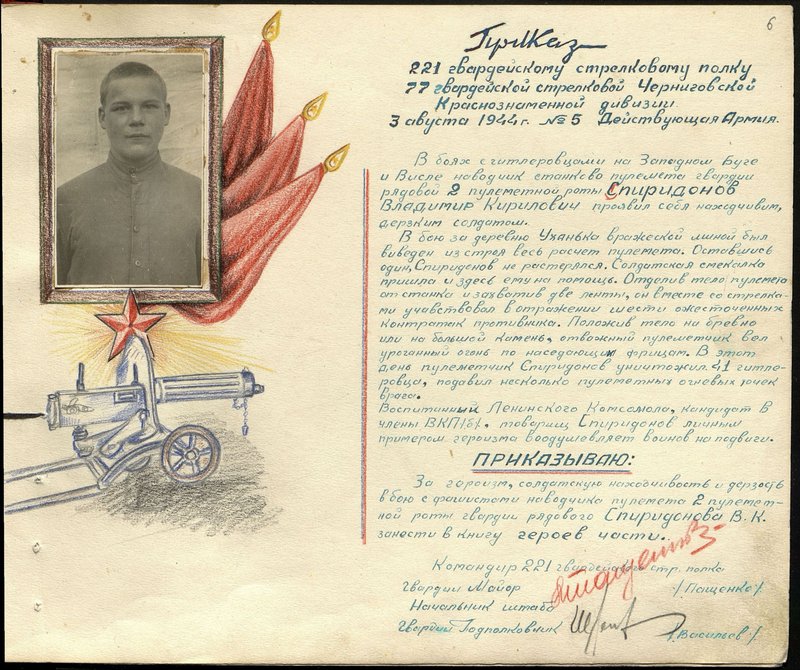 6
Приказ
221 гвардейскому стрелковому полку
77 гвардейской стрелковой Черниговской
Краснознаменной дивизии.
3 августа 1944 г. №5 Действующая Армия.
В боях с гитлеровцами на Западном Буге
и Висле наводчик станково пулемета гвардии
рядовой 2 пулеметной роты Спиридонов
Владимир Кирилович проявил себя находчивым,
дерзким солдатом.
В бою за деревню Уханька вражеской миной был
выведен из строя весь расчет пулемета. Оставшись
один, Спиридонов не растерялся. Солдатская смекалка
пришла и здесь ему на помощь. Отделив тело пулемета
от станка и захватив две ленты, он вместе со стрелка-
ми участвовал в отражении шести ожесточенных
контратак противника. Положив тело на бревно
или на большой камень, отважный пулеметчик вел
ураганный огонь по наседающим фрицам. В этот
день пулеметчик Спиридонов уничтожил 41 гитле-
ровца, подавил несколько пулеметных огневых точек
врага.
Воспитанный Ленинского Комсомола, кандидат в
члены ВКП/б/, товарищ Спиридонов личным
примером героизма воодушевляет воинов на подвиги.
ПРИКАЗЫВАЮ:
За героизм, солдатскую находчивость и дерзость
в бою с фашистами наводчика пулемета 2 пулемет-
ной роты гвардии рядового Спиридонова В. К.
занести в книгу героев части.
Командир 221 гвардейского стр. полка
Гвардии Майор /Пащенко/
Начальник штаба
Гвардии Подполковник /Васильев/